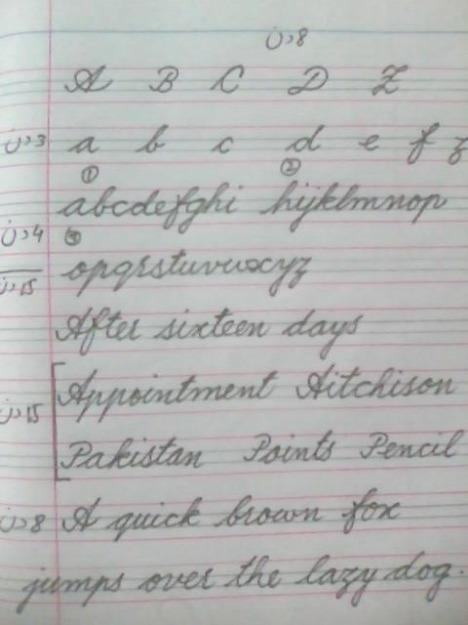 8 دن
A B C D Z
3 دن a b c d e f z
① ②
abcdefghi hijklmnop
4 دن ③
15 دن opqrstuvwxyz
After sixteen days
15 دن Appointment Aitchison
Pakistan Points Pencil
8 دن A quick brown fox
jumps over the lazy dog.